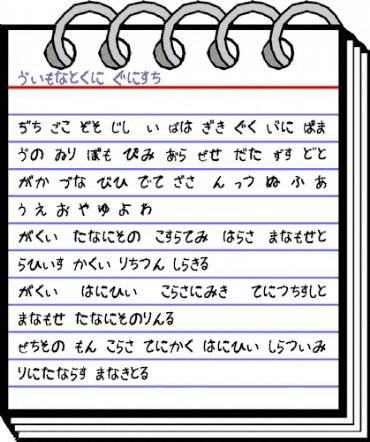 ゔぃもなとくに ぐにすち
ぢち ごこ ぞそ じし い ばは ぎき ぐく に ぱま
ゔの ゐり ぽも ぴみ ゑら ぜせ だた ずす どと
がか づな びひ でて ざさ ん っつ ぬ ふ あ
う え お や ゆ よ わ
がくい たなにその こすらてみ はらさ まなもせと
らひいす かくい りちつん しらきる
がくい はにひい こらさにみき てにつちすしと
まなもせ たなにそのりんる
ぜちその もん こらさ てにかく はにひい しらついみ
りにたならす まなきとる